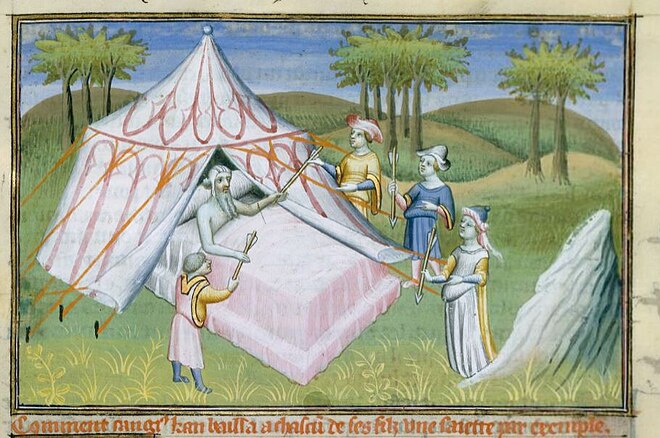 Comment cangⁱˢ kan bailla a chascũ de ses filz vne saiette par exemple.